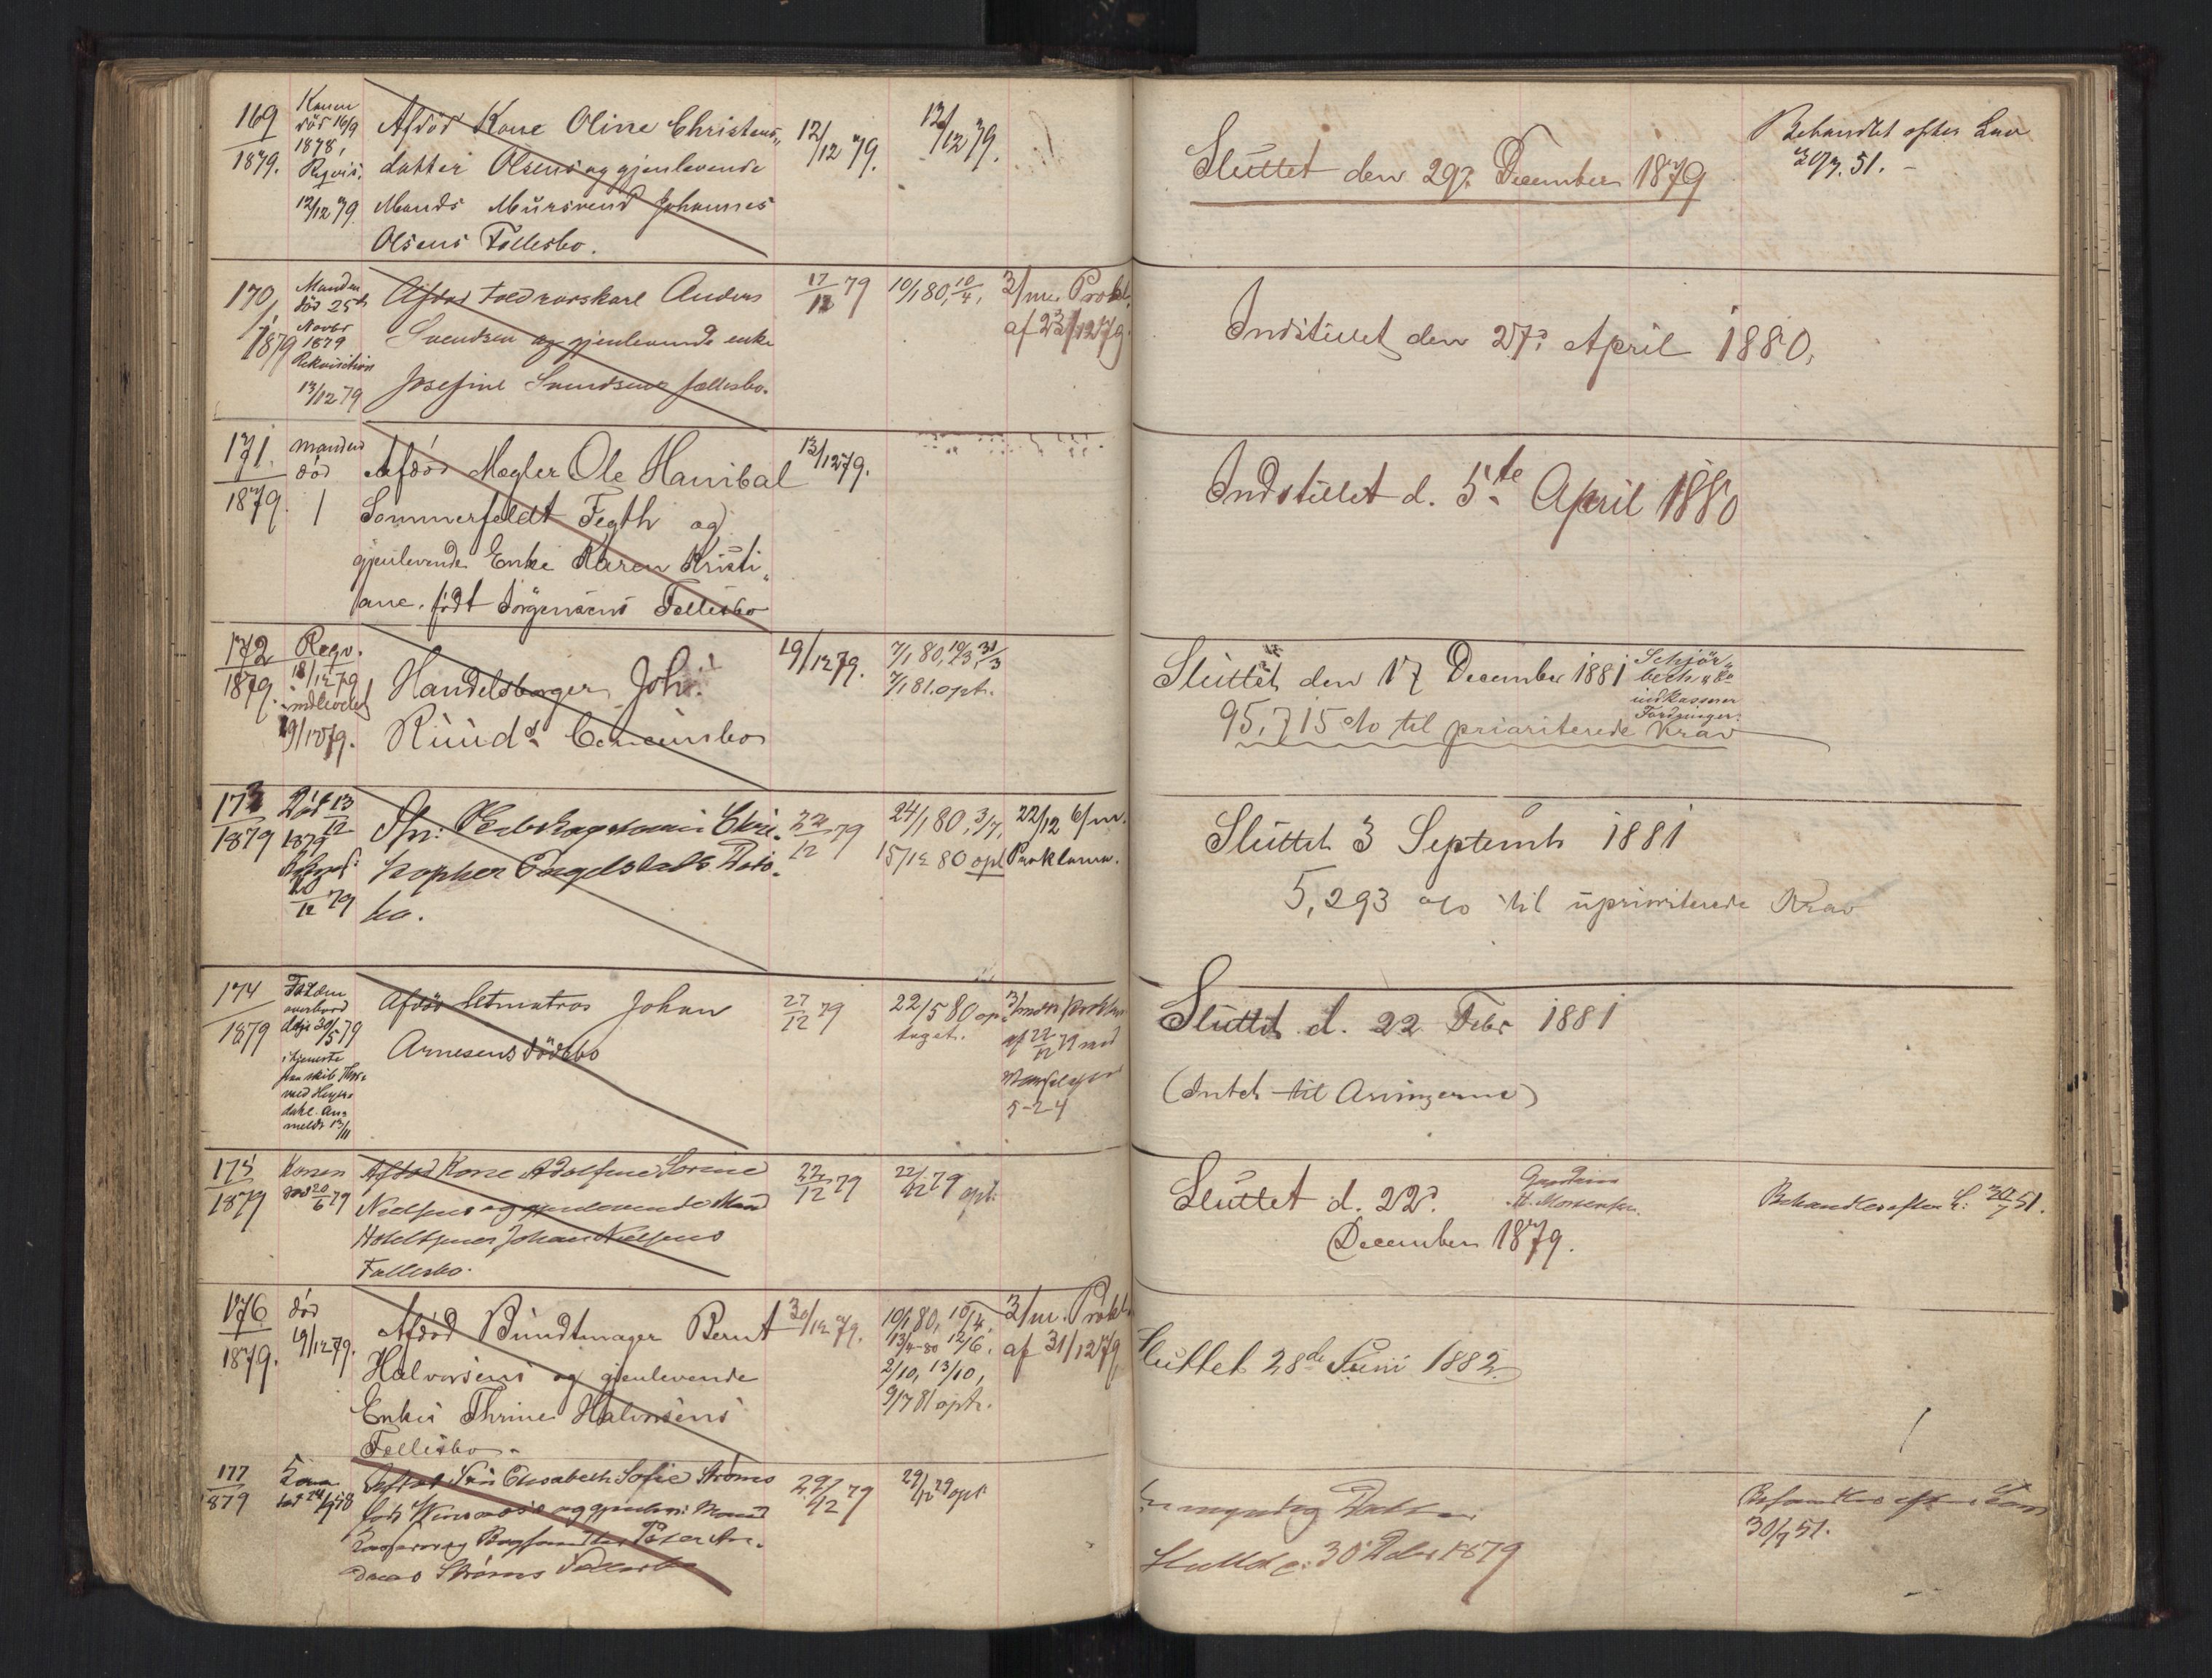 169
1879.
Konen
død 16/9
1878,
Reqvis.
12/12 79
Afdød Kone Oline Christens„
datter Olsens og gjenlevende
Mands Mursvend Johannes
Olsens Fællesbo.
12/12 79.
12/12 79.
Sluttet den 29d. December 1879
Behandlet efter Lov
30/7. 51. –
170,
1879
Manden
død 25de
Novbr
1879
Rekvisition
13/12 79
Afdød Anders
Svendsen og gjenlevende enke
Josefine Svendsens fællesbo.
17/12 79
10/1 80, 10/4,
3/mn. Prokl.
af 23/12 79.
Indstillet den 27d. April 1880.
171.
1879.
Manden
død
/
Afdød Mægler Ole Hanibal
Sommerfeldt Fegth og
gjenlevende Enke Karen Kristi„
ane, født Jörgensens Fællesbo
13/12 79.
Indstillet d. 5te April 1880
172
1879.
Reqv.
18/12 79
indlevet
19/12 79.
Handelsborger Joh.
Ruuds Concursbo
19/12 79.
7/1 80, 19/3, 31/3
7/1 81. opt.
Sluttet den 17 December 1881
95,715 o/o til prioriterede Krav
173
1879
Død 13/12
1879
20/12 79
Christopher Dødsbo.
22/12 79
24/1 80, 3/7,
15/12 80 opt
22/12 6/m.
Proklama.
Sluttet 3 Septemb 1881
5,293 o/o til uprioriterede Krav
174
1879
Falden
overbord
30/5 79
i tjeneste
med
dahl. An„
meldt 13/11
Afdød Letmatros Johan
Arnesens dødsbo
27/12 79
22/5 80 op„
taget.
af 22/12 79 med
5-24
Sluttet d. 22 Febr 1881
(Intet til Arvingerne)
175
1879
Konen
død 20/6 79
Afdød Kone Adolfine Sorine
Nielsens og gjenlevende Mand
Johan Nielsens
Fællesbo.
22/12 79
22/12 79 opt.
Sluttet d. 22d.
December 1879.
Behandles efter L: 30/7 51.
176
1879.
død
19/12 79.
Afdød Bundtmager Bernt
Halvorsens og gjenlevende
Enkes Thrine Halvorsens
Fællesbo.
30/12 79.
10/1 80, 10/4,
13/4-80 12/6,
2/10, 13/10,
9/7 81 opt.
3/m. Prokl.
af 31/12 79.
Sluttet 28de Juni 1882.
177
1879
Afdød Fru Elisabeth Sofie Strøms
født og gjenlev: Mand
Peter
Strøms Fællesbo
29/12 79
29/12 79 opt
Sluttet d. 30 1879
Behandles efter Lov
30/7 51.